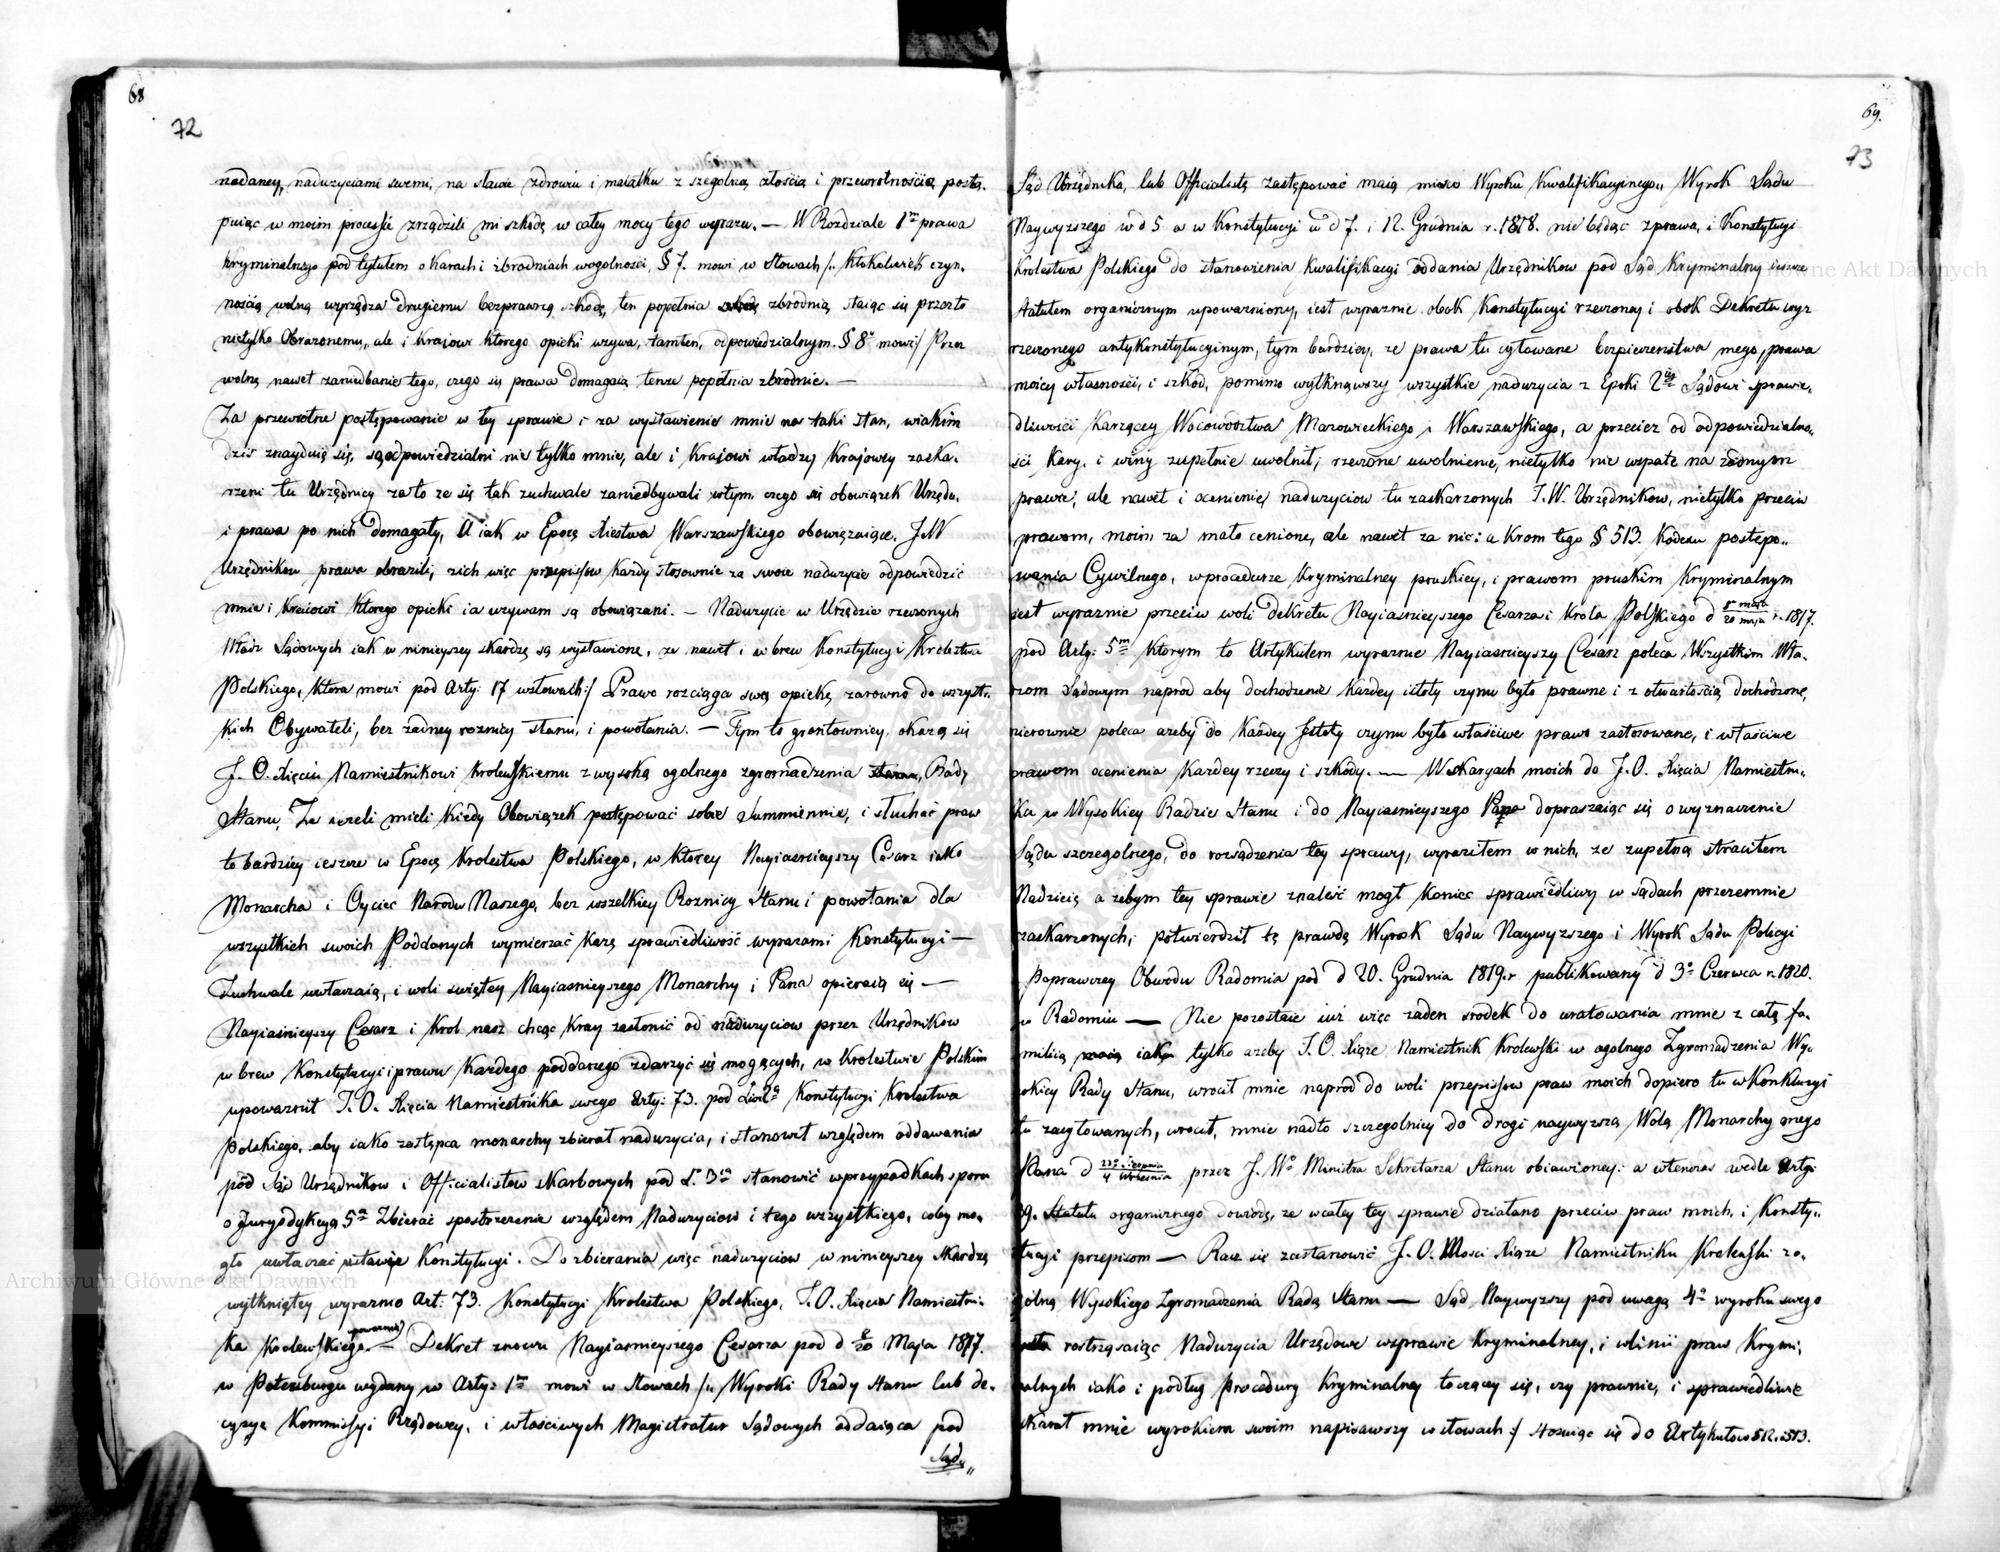 68
72
nadaney, nadużyciami swemi, na sławie zdrowiu i maiątku z szegolną złością i przewrotnością postę.
puiąc w moim processie zrządzili mi szkodę w całey mocy tego wyrazu. — W Rozdziale 1m prawa
Kryminalnego pod tytułem o karach i zbrodniach wogolności, § 7. mowi w słowach /: Ktokolwiek czyn,
nością wolną wyrządza drugiemu bezprawną szkodę, ten popełnia zbrodnią staiąc się przeto
nietylko Obrażonemu, ale i Kraiowi ktorego opieki wzywa, tamten, odpowiedzialnym. § 8° mowi:/ Przez
wolną nawet zaniedbanie tego, czego się prawa domagaią tenże popełnia zbrodnie. —
Za przewrotne postępowanie w tey sprawie i za wystawienie mnie na taki stan, wiakim
dziś znayduię się, są odpowiedzialni nie tylko mnie, ale i Kraiowi władzy Kraiowey zaska,
rżeni tu Urzędnicy za to że się tak zuchwale zaniedbywali wtym czego się obowiązek Urzędu,
i prawa po nich domagały, A iak w Epoce Xiestwa Warszawskiego obowięzuiące, JW
Urzędnikow prawa obrazili, zich więc przepisow każdy stosownie za swoie nadużycie odpowiedzić
mnie i Kraiowi ktorego opieki ia wzywam są obowiązani. — Nadużycie w Urzędzie rzeczonych
Władz Sądowych iak w ninieyszey skardze są wystawione, że nawet i wbrew Konstytucyi Krolestwa
Polskiego, ktora mowi pod Arty: 17 wsłowach:/ Prawo rozciąga swą opiekę zarowno do wszyst.
kich Obywateli, bez żadney rożnicy stanu, i powołania. — Tym to gruntowniey okażą się
J. O. Xięciu Namiestnikowi Krolewskiemu z wysoką ogolnego zgromadzenia Rady
Stanu, Że ieżeli mieli kiedy Obowiązek postępować sobie Summiennie, i słuchać praw
to bardziey ieszcze w Epoce Krolestwa Polskiego, w ktorey Nayiaśnieyszy Cesarz iako
Monarcha i Oyciec Narodu Naszego, bez wszelkiey Rożnicy Stanu i powołania dla
wszystkich swoich Poddanych wymierzać każę sprawiedliwość wyrazami Konstytucyi —
Zuchwale uwłaczaią, i woli świętey Nayiaśnieyszego Monarchy i Pana opieraią się —
Nayiaśnieyszy Cesarz i Krol nasz chcąc Kray zasłonić od nadużyciow przez Urzędnikow
wbrew Konstytucyi i prawu Każdego poddanego zdarzyć się mogących, w Krolestwie Polskim
upoważnił J. O. Xięcia Namiestnika swego Arty: 73. pod Konstytucyi Krolestwa
Polskiego, aby iako zastępca monarchy zbierał nadużycia, i stanowił względem oddawania
pod Sąd Urzędnikow i Officialistow skarbowych pod L. 3ia stanowić wprzypadkach sporu
o Jurysdykcyą 5a Zbierać spostrzeżenie względem Nadużyciow i tego wszystkiego, coby mo,
gło uwłaczać ustawie Konstytucyi. Do zbierania więc nadużyciow w ninieyszey skardze
wytkniętey wyraźno Art: 73. Konstytucyi Krolestwa Polskiego, J. O. Xięcia Namiestni,
ka Krolewskiego — Dekret znowu Nayiaśnieyszego Cesarza pod d 8/20 Maja 1817.
w Petersburgu wydany w Arty: 1m mowi w słowach /: Wyroki Rady Stanu lub de,
cyzye Kommissyi Rządowey, i właściwych Magistratur Sądowych oddaiąca pod
Sąd,,
69.
73
Sąd Urzędnika, lub Officialistę zastępować maią miesce Wyroku Kwalifikacyinego,, Wyrok Sądu
Naywyższego w d 5 a w Konstytucyi w d 7. i 12. Grudnia r. 1818. nie będąc zprawa, i Konstytucyi
Krolestwa Polskiego do stanowienia Kwalifikacyi oddania Urzędnikow pod Sąd Kryminalny
Statutem organicznym upoważniony, iest wyraznie obok Konstytucyi rzeczoney i obok Dekretu wyz
rzeczonego antykonstytucyinym, tym bardziey, że prawa tu cytowane bezpieczeństwa mego, prawa
moiey własności, i szkod, pomimo wytknąwszy wszystkie nadużycia z Epoki 2iey Sądowi sprawie,
dliwości Karzącey Wojewodztwa Mazowieckiego i Warszawskiego, a przecież od odpowiedzialno,
ści Kary, i winy zupełnie uwolnił, rzeczone uwolnienie, nietylko nie wsparte na żadnym
prawie, ale nawet i ocenienie nadużyciow tu zaskarżonych J. W. Urzędnikow, nietylko przeciw
prawom, moim za mało cenione, ale nawet za nic: a krom tego § 513. Kodexu postępo,,
wania Cywilnego, w procedurze Kryminalney pruskiey, i prawom pruskim Kryminalnym
iest wyraźnie przeciw woli dekretu Nayiaśnieyszego Cesarza i Krola Polskiego d 8 maja/20 maja r. 1817.
pod Arty: 5m ktorym to Artykułem wyraznie Nayiaśnieyszy Cesarz poleca Wszystkim Wła.
dzom Sądowym naprod aby dochodzenie każdey istoty czynu było prawne i z otwartością dochodzone,
nierownie poleca ażeby do każdey Istoty czynu było właściwe prawo zastosowane, i właściwe
prawom ocenienia każdey rzeczy i szkody. — W skargach moich do J. O. Xięcia Namiestni,
ka w Wysokiey Radzie Stanu i do Nayiaśnieyszego Pana dopraszaiąc się o wyznaczenie
Sądu szczegolnego, do rozsądzenia tey sprawy, wyraziłem w nich, że zupełną straciłem
Nadzieię ażebym tey sprawie znaleść mogł koniec sprawiedliwy w sądach przezemnie
zaskarżonych; potwierdził tę prawdę Wyrok Sądu Naywyższego i Wyrok Sądu Policyi
Poprawczey Obwodu Radomia pod d 20. Grudnia 1819.r publikowany d 3° Czerwca r. 1820.
w Radomiu — Nie pozostaie iuż więc żaden srodek do uratowania mnie z całą fa.
milią iak tylko ażeby J. O. Xiąże Namiestnik Krolewski w ogolnego Zgromadzenia Wy,
sokiey Rady Stanu, wrocił mnie naprod do woli przepisow praw moich dopiero tu w Konkluzyi
tu zacytowanych, wrocił, mnie nadto szczegolniey do drogi naywyższą Wolą Monarchy mego
Pana d 23° Sierpnia/4 Września przez J. W° Ministra Sekretarza Stanu obiawioney: a wtenczas wedle Arty:
Statutu organicznego dowiodę, że wcałey tey sprawie działano przeciw praw moich, i Konsty,,
tucyi przepisom — Racz się zastanowić J. O. Mości Xiąże Namiestniku Krolewski zo,
golną Wysokiego Zgromadzenia Radą Stanu — Sąd Naywyższy pod uwagą 4a wyroku swego
roztrząsaiąc Nadużycia Urzędowe wsprawie Kryminalney, i wlinii praw Krymi,
nalnych iako i podług Procedury Kryminalney toczącey się, czy prawnie, i sprawiedliwie
skarał mnie wyrokiem swoim napisawszy w słowach:/ stosuiąc się do Artykułow 512. i 513.